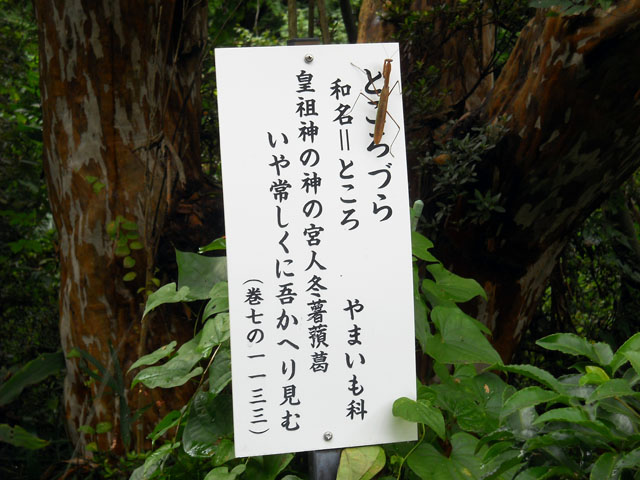 ところづら
和名＝ところ　やまいも科
皇祖神の神の宮人冬薯蕷葛
いや常しくに吾かへり見む
（巻七の一一三三）